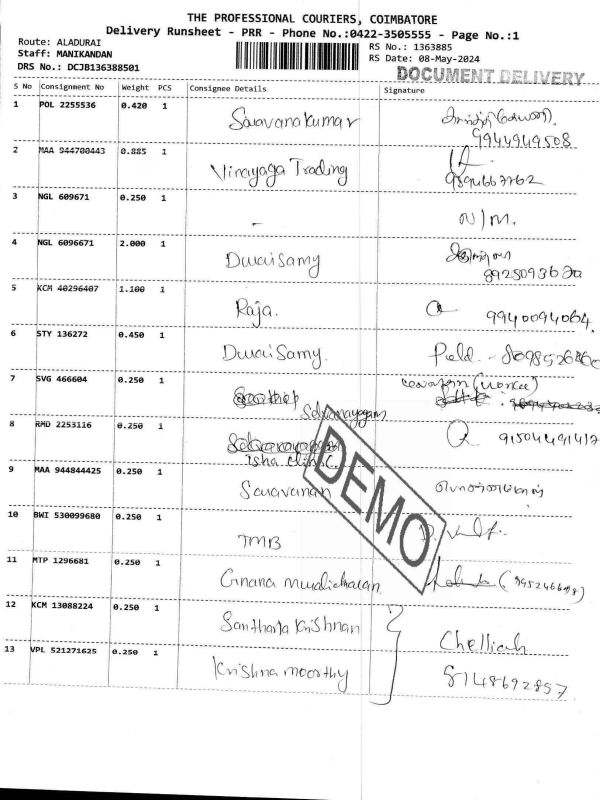 THE PROFESSIONAL COURIERS, COIMBATORE
Delivery Runsheet - PRR - Phone No.:0422-3505555 - Page No.:1
Route: ALADURAI
Staff: MANIKANDAN
DRS No.: DCJB136388501
RS No.: 1363885
RS Date: 08-May-2024
DOCUMENT DELIVERY
S No Consignment No Weight PCS Consignee Details Signature
1 POL 2255536 0.420 1 Saravanakumar
9944949508
2 MAA 944700443 0.885 1 Vinayaga Trading
9894667762
3 NGL 609671 0.250 1 - N/M.
4 NGL 6096671 2.000 1 Duraisamy
5 KCM 40296407 1.100 1 Raja. 9940094064.
6 STY 136272 0.450 1 Duraisamy.
7 SVG 466604 0.250 1
Selvanayagam
8 RMD 2253116 0.250 1 91504491417
Isha clinic.
9 MAA 944844425 0.250 1 Saravanan
10 BWI 530099680 0.250 1 TMB
11 MTP 1296681 0.250 1 Gnana
12 KCM 13088224 0.250 1 Santhana Krishnan
Chelliah
13 VPL 521271625 0.250 1 Krishna moorthy 8148692857
DEMO